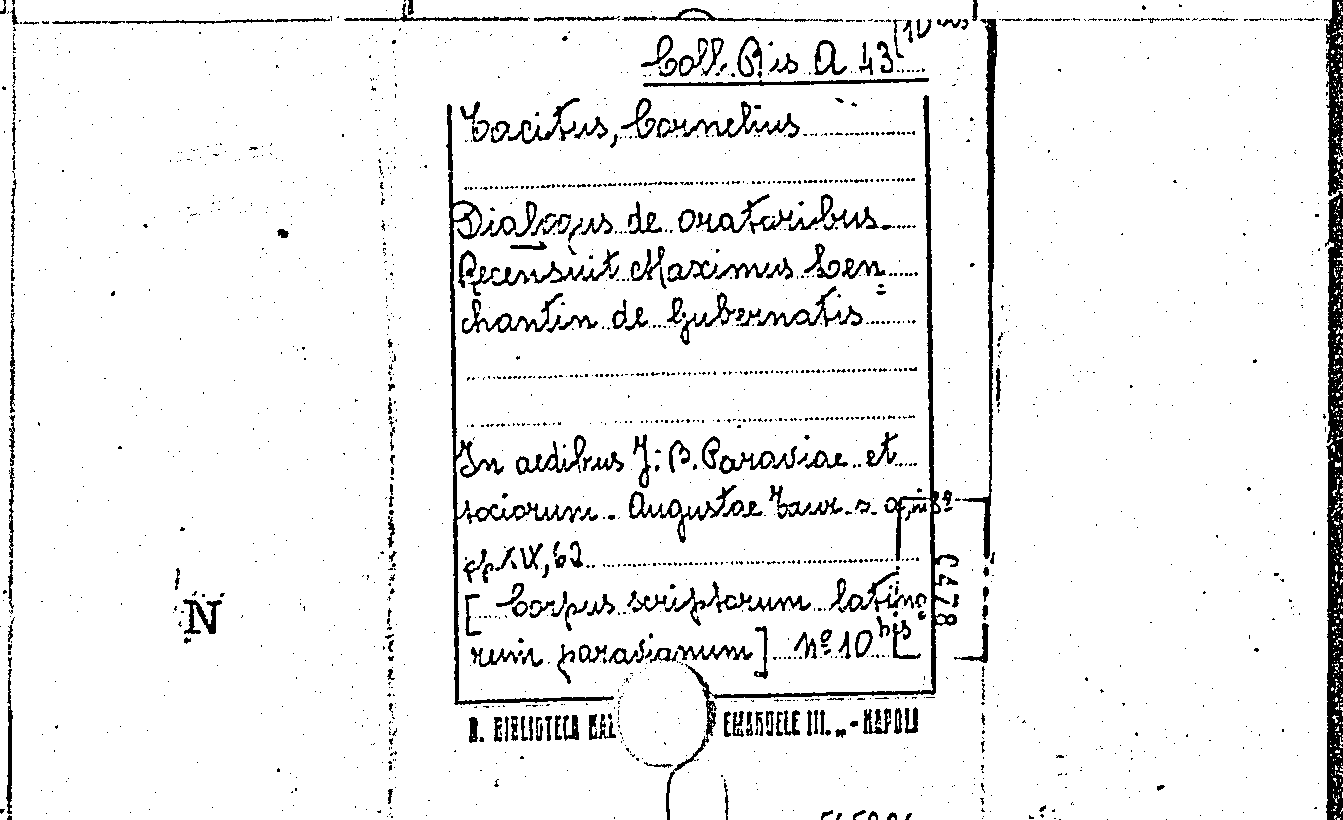 Coll. Ris A 43 (10 bis
Tacitus, Cornelius
Dialogus de oratoribus.
Recensuit Maximus Len=
chantin de Gubernatis
In aedibus J: B. Paraviae et
sociorum. Augustae Taur. s. a., in 8º
pp XIX, 62
[Corpus scriptorum latino=
rum paravianum] Nº 10 bis
C478
N
R. BIBLIOTECA NAZ EMANUELE III. „ - NAPOLI